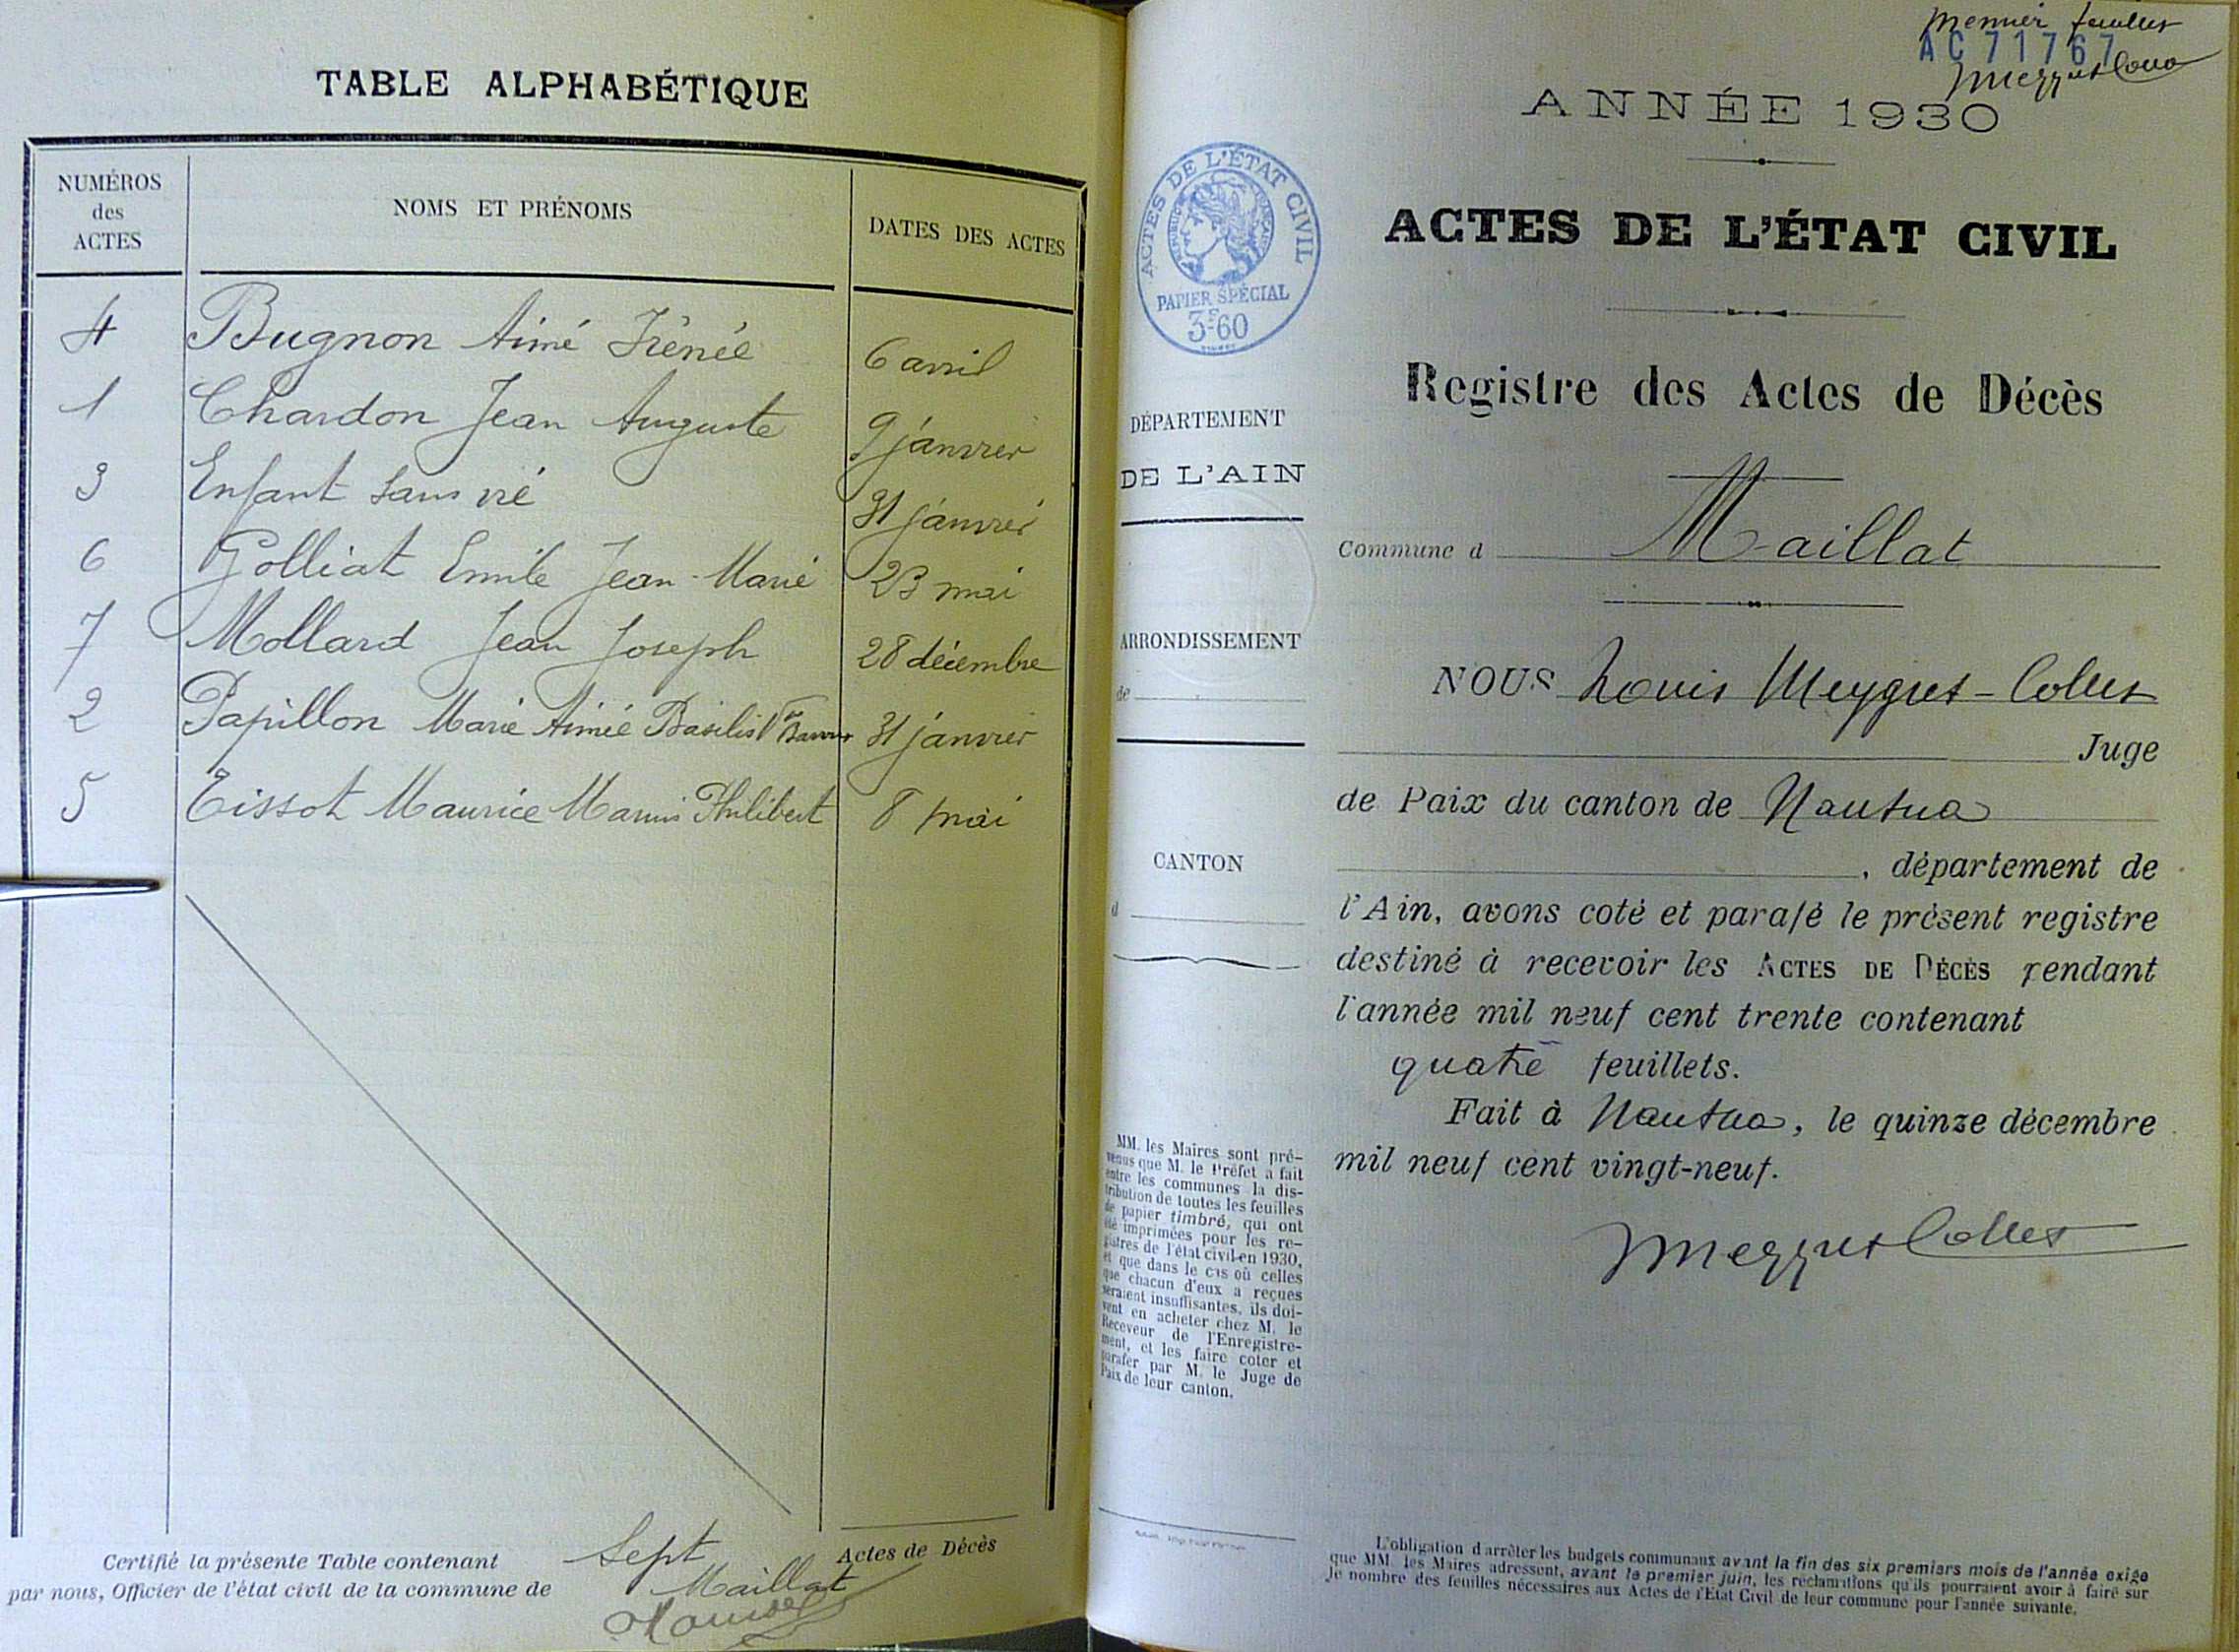 TABLE ALPHABÉTIQUE
NUMÉROS
des
ACTES
NOMS ET PRÉNOMS
DATES DES ACTES
4 Bugnon Aimé Irénée 6 avril
1 Chardon Jean Auguste 9 janvier
3 Enfant sans vie 31 janvier
6 Golliat Emile Jean-Marie 23 mai
7 Mollard Jean Joseph 28 décembre
2 Papillon Marie Aimée Basilis 31 janvier
5 Tissot Maurice Marius Philibert 8 mai
Certifié la présente Table contenant Sept Actes de Décès
par nous, Officier de l'état civil de la commune de Maillat
Premier feuillet
AC71767
ANNÉE 1930
ACTES DE L'ÉTAT CIVIL
PAPIER SPÉCIAL
3F60
ACTES DE L'ÉTAT CIVIL
Registre des Actes de Décès
DÉPARTEMENT
DE L'AIN
Commune d Maillat
ARRONDISSEMENT
de
CANTON
d
NOUS Louis Meygret-Collet
Juge
de Paix du canton de Nantua
, département de
l'Ain, avons coté et parafé le présent registre
destiné à recevoir les ACTES DE DÉCÈS pendant
l'année mil neuf cent trente contenant
quatre feuillets.
Fait à Nantua, le quinze décembre
mil neuf cent vingt-neuf.
Meygret Collet
MM. les Maires sont pré-
venus que M. le Préfet a fait
entre les communes la dis-
tribution de toutes les feuilles
de papier timbré, qui ont
été imprimées pour les re-
gistres de l'état civil en 1930,
et que dans le cas où celles
que chacun d'eux a reçues
seraient insuffisantes, ils doi-
vent en acheter chez M. le
Receveur de l'Enregistre-
ment, et les faire coter et
parafer par M. le Juge de
Paix de leur canton.
L'obligation d'arrêter les budgets communaux avant la fin des six premiers mois de l'année exige
que MM. les Maires adressent, avant le premier juin, les réclamations qu'ils pourraient avoir à faire sur
le nombre des feuilles nécessaires aux Actes de l'État Civil de leur commune pour l'année suivante.